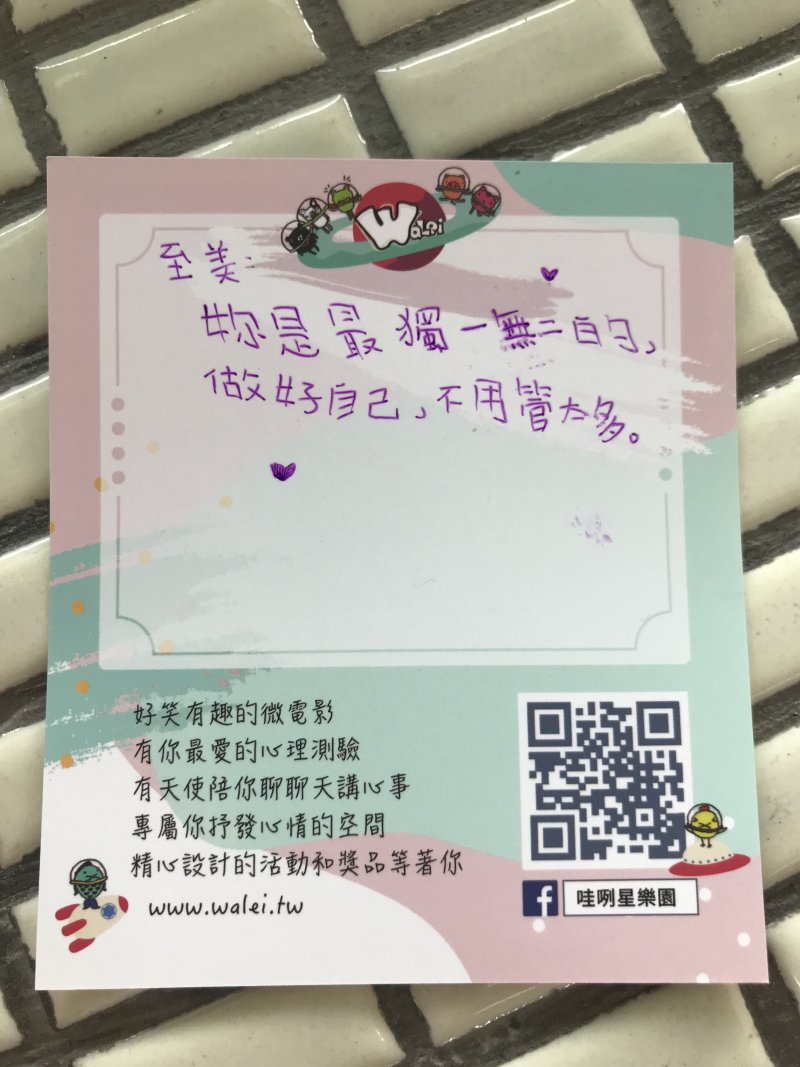 Walei
至美：
妳是最獨一無二的，
做好自己，不用管太多。
好笑有趣的微電影
有你最愛的心理測驗
有天使陪你聊聊天講心事
專屬你抒發心情的空間
精心設計的活動和獎品等著你
www.walei.tw
哇咧星樂園